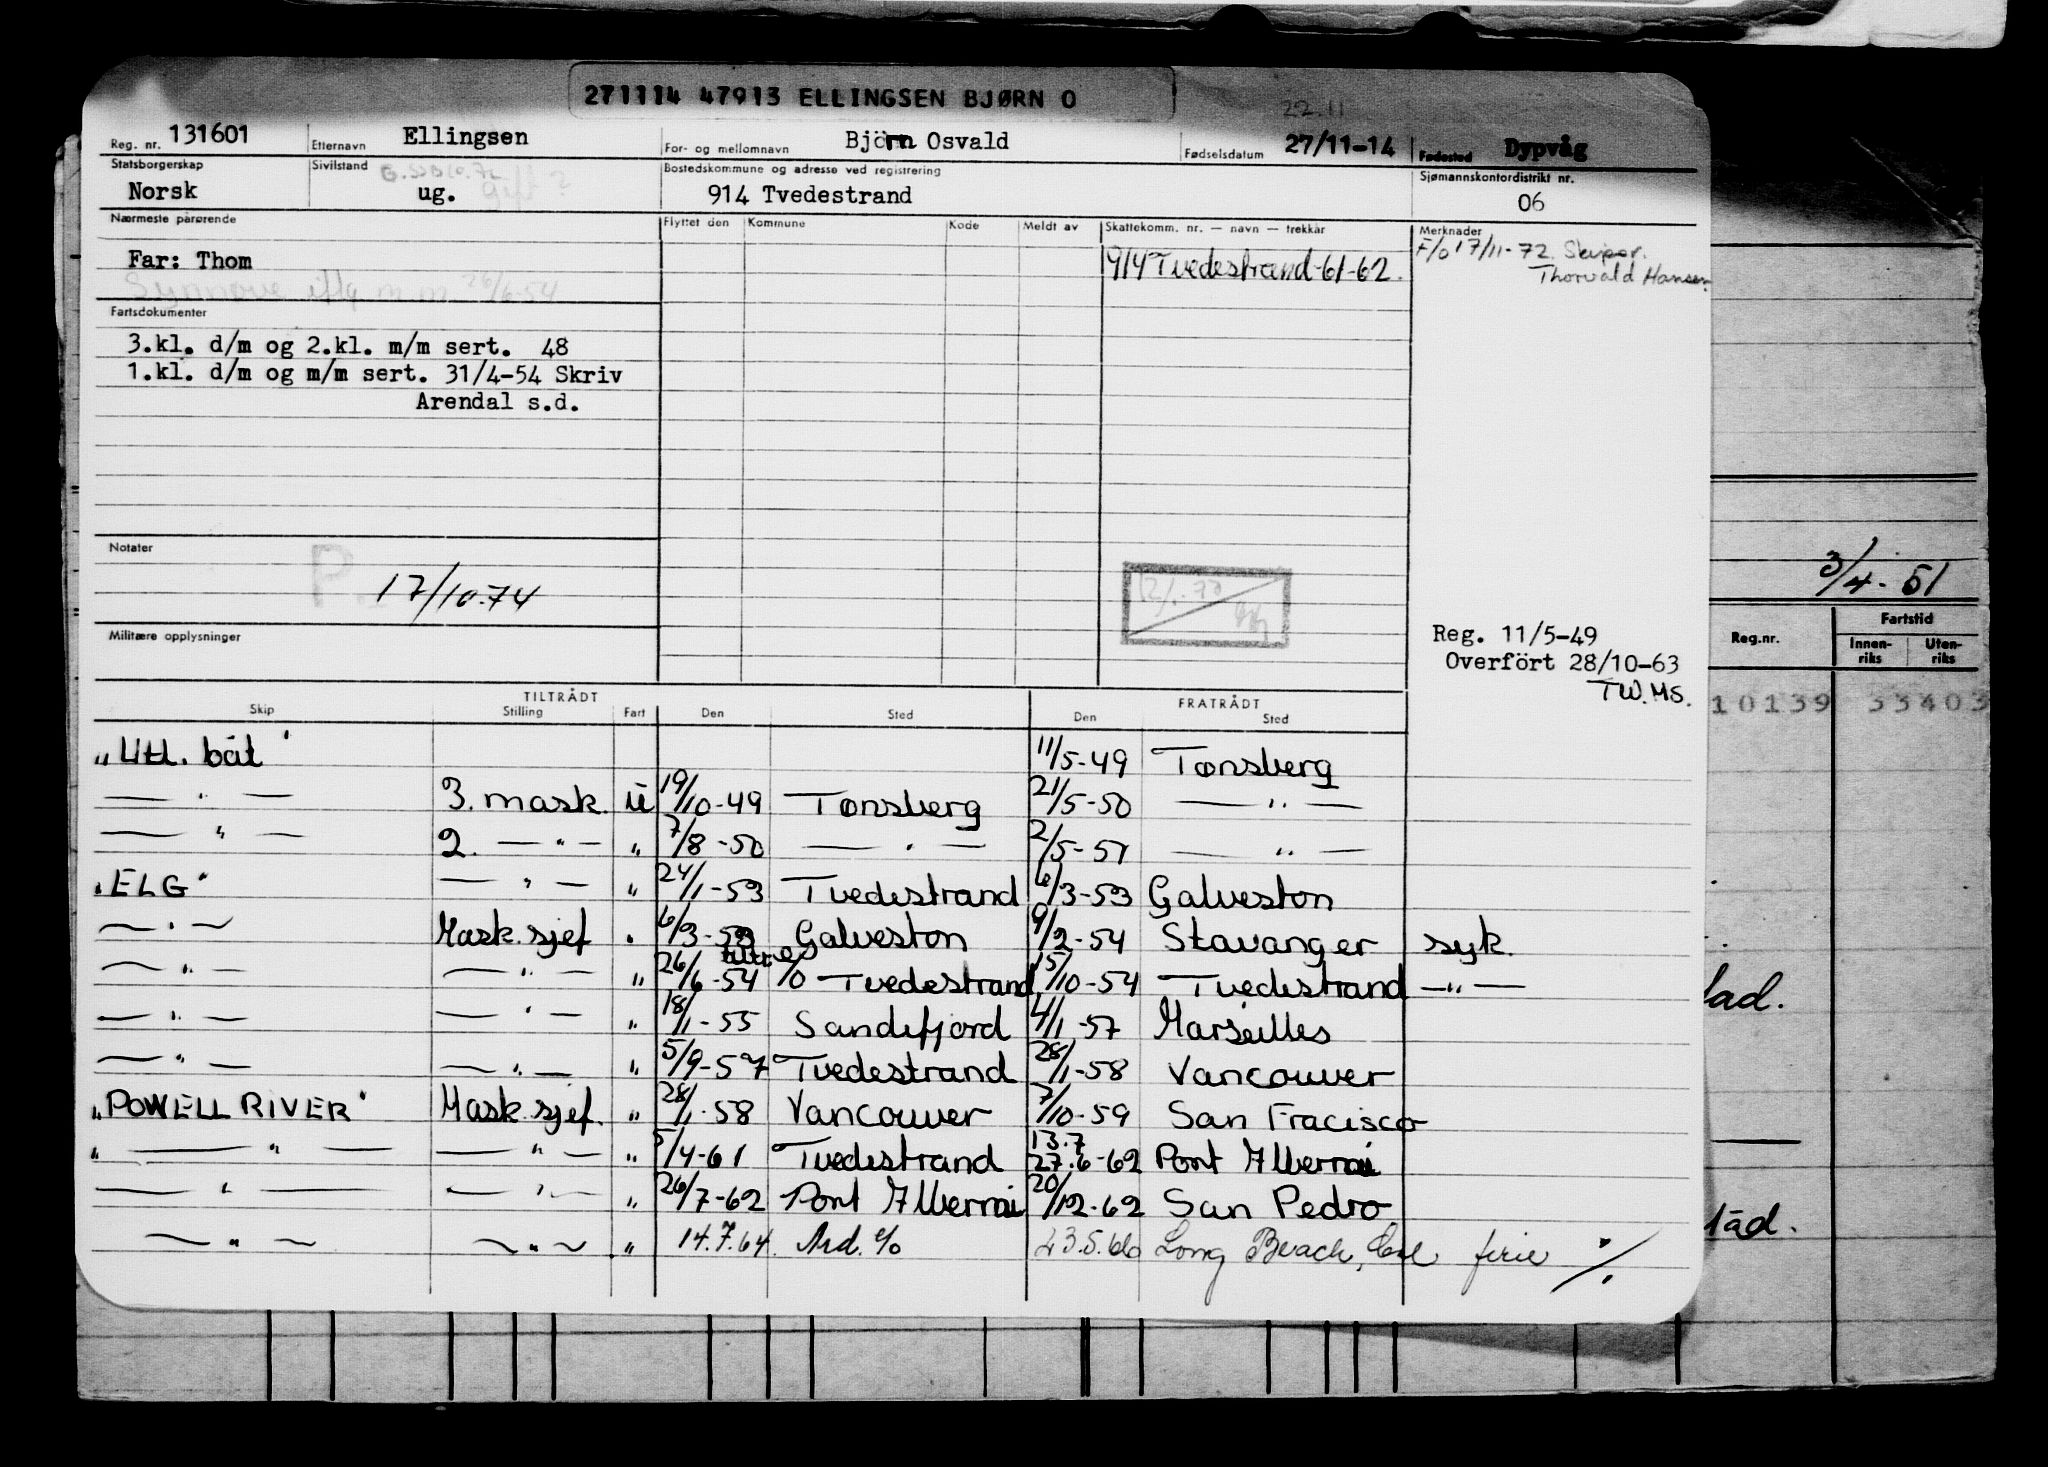 271114 47913 ELLINGSEN BJØRN O
22.11
Reg. nr. 131601 Etternavn Ellingsen For- og mellomnavn Bjørn Osvald Fødselsdatum 27/11-14 Fødested Dypvåg
Statsborgerskap Sivilstand Bostedskommune og adresse ved registrering Sjømannskontordistrikt nr.
Norsk ug. gift ? 914 Tvedestrand 06
Nærmeste pårørende Flyttet den Kommune Kode Meldt av Skattekomm. nr. — navn — trekkår Merknader
Far: Thom 914 Tvedestrand-61-62. F/o 17/11-72. Skipor.
Thorvald Hansen
Synnøve iflg m m 26/6-54
Fartsdokumenter
3.kl. d/m og 2.kl. m/m sert. 48
1.kl. d/m og m/m sert. 31/4-54 Skriv
Arendal s.d.
Notater
P.
17/10-74
3/4-51
Militære opplysninger
Reg. 11/5-49
Overført 28/10-63
TW.MS.
Reg.nr. Fartstid
Innen-riks Uten-riks
10139 33403
TILTRÅDT FRATRÅDT
Skip Stilling Fart Den Sted Den Sted
"Utl. båt" 11/5-49 Tønsberg
— " — 3. mask. u 19/10-49 Tønsberg 21/5-50 — " —
— " — 2. — " — " 7/8-50 — " — 2/5-51 — " —
"ELG" — " — " 24/1-53 Tvedestrand 6/3-53 Galveston
— " — Mask. sjef " 6/3-53 Galveston 9/2-54 Stavanger syk.
— " — — " — " 26/6-54 % Tvedestrand 15/10-54 Tvedestrand — " —
— " — — " — " 18/1-55 Sandefjord 4/1-57 Marseilles
— " — — " — " 5/9-57 Tvedestrand 28/1-58 Vancouver
"POWELL RIVER" Mask. sjef. " 28/1-58 Vancouver 7/10-59 San Fracisco
" — " — — " — " 5/4-61 Tvedestrand 13.7 27.6-62 Port Alberni
— " — — " — " 26/7-62 Port Alberni 20/12-62 San Pedro
— " — — " — " 14.7.64 Ard. % 23.5.66 Long Beach, Cal ferie %